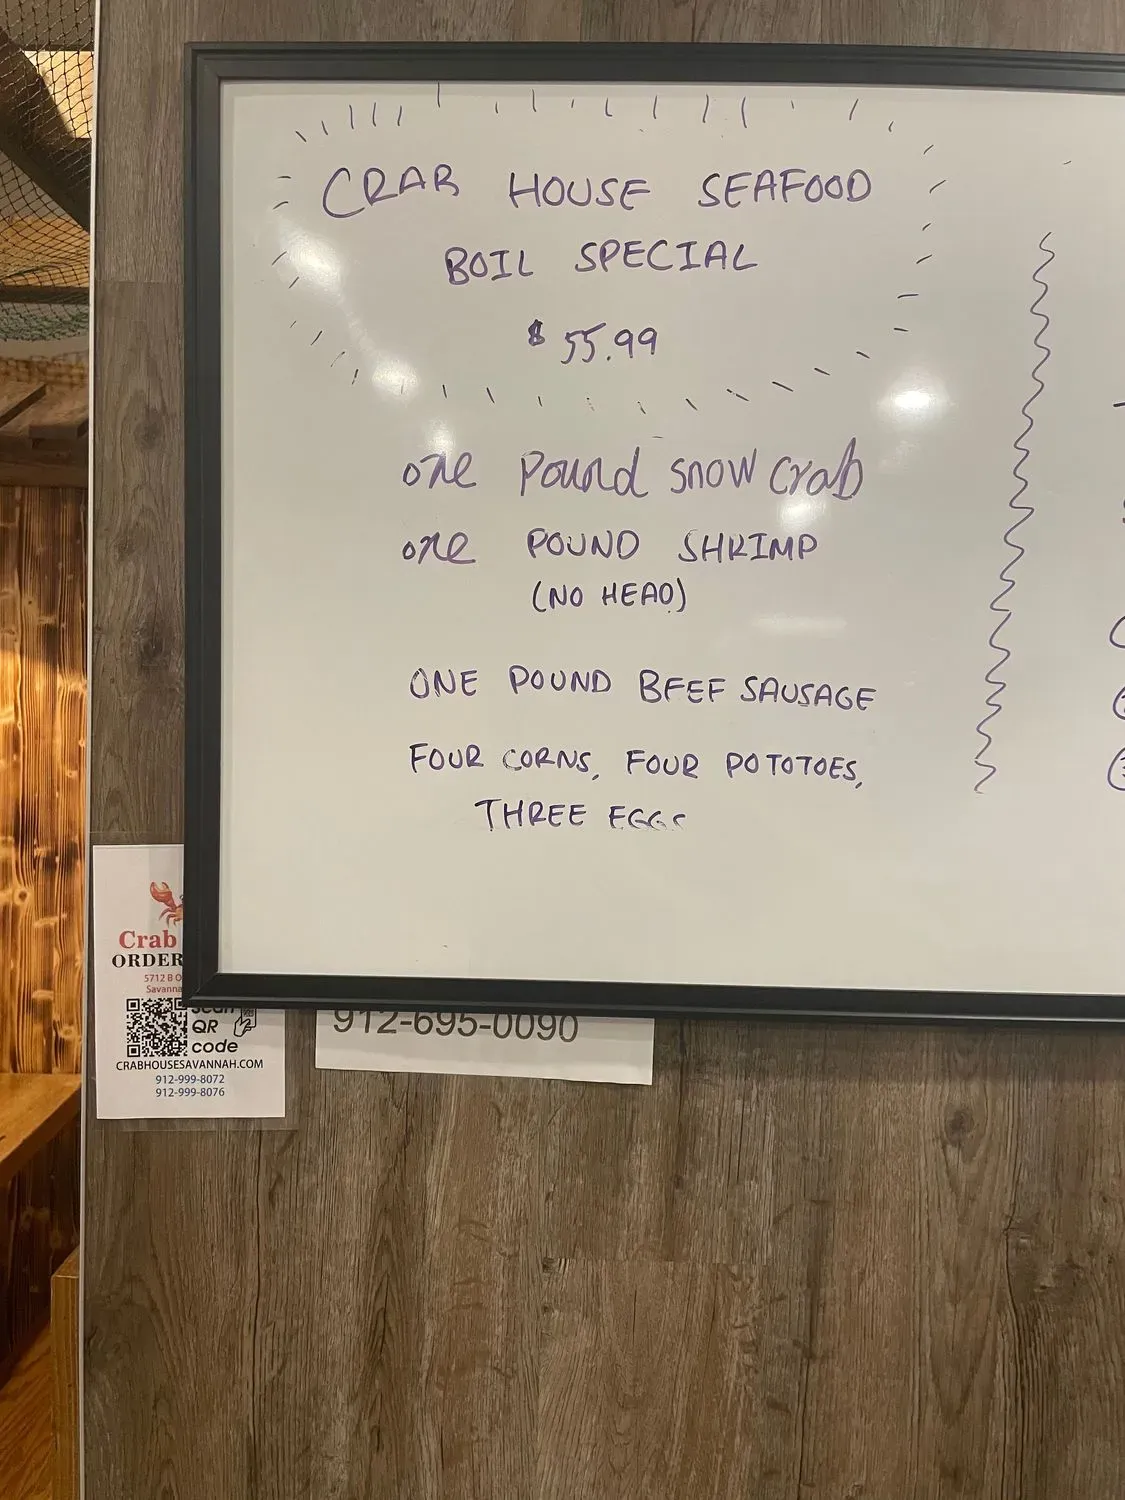 CRAB HOUSE SEAFOOD
BOIL SPECIAL
$55.99
one Pound snow crab
one POUND SHRIMP
(NO HEAD)
ONE POUND BEEF SAUSAGE
FOUR CORNS, FOUR POTOTOES,
THREE EGGS
Crab
ORDER
5712 B O
Savanna
Scan
QR
code
CRABHOUSESAVANNAH.COM
912-999-8072
912-999-8076
912-695-0090